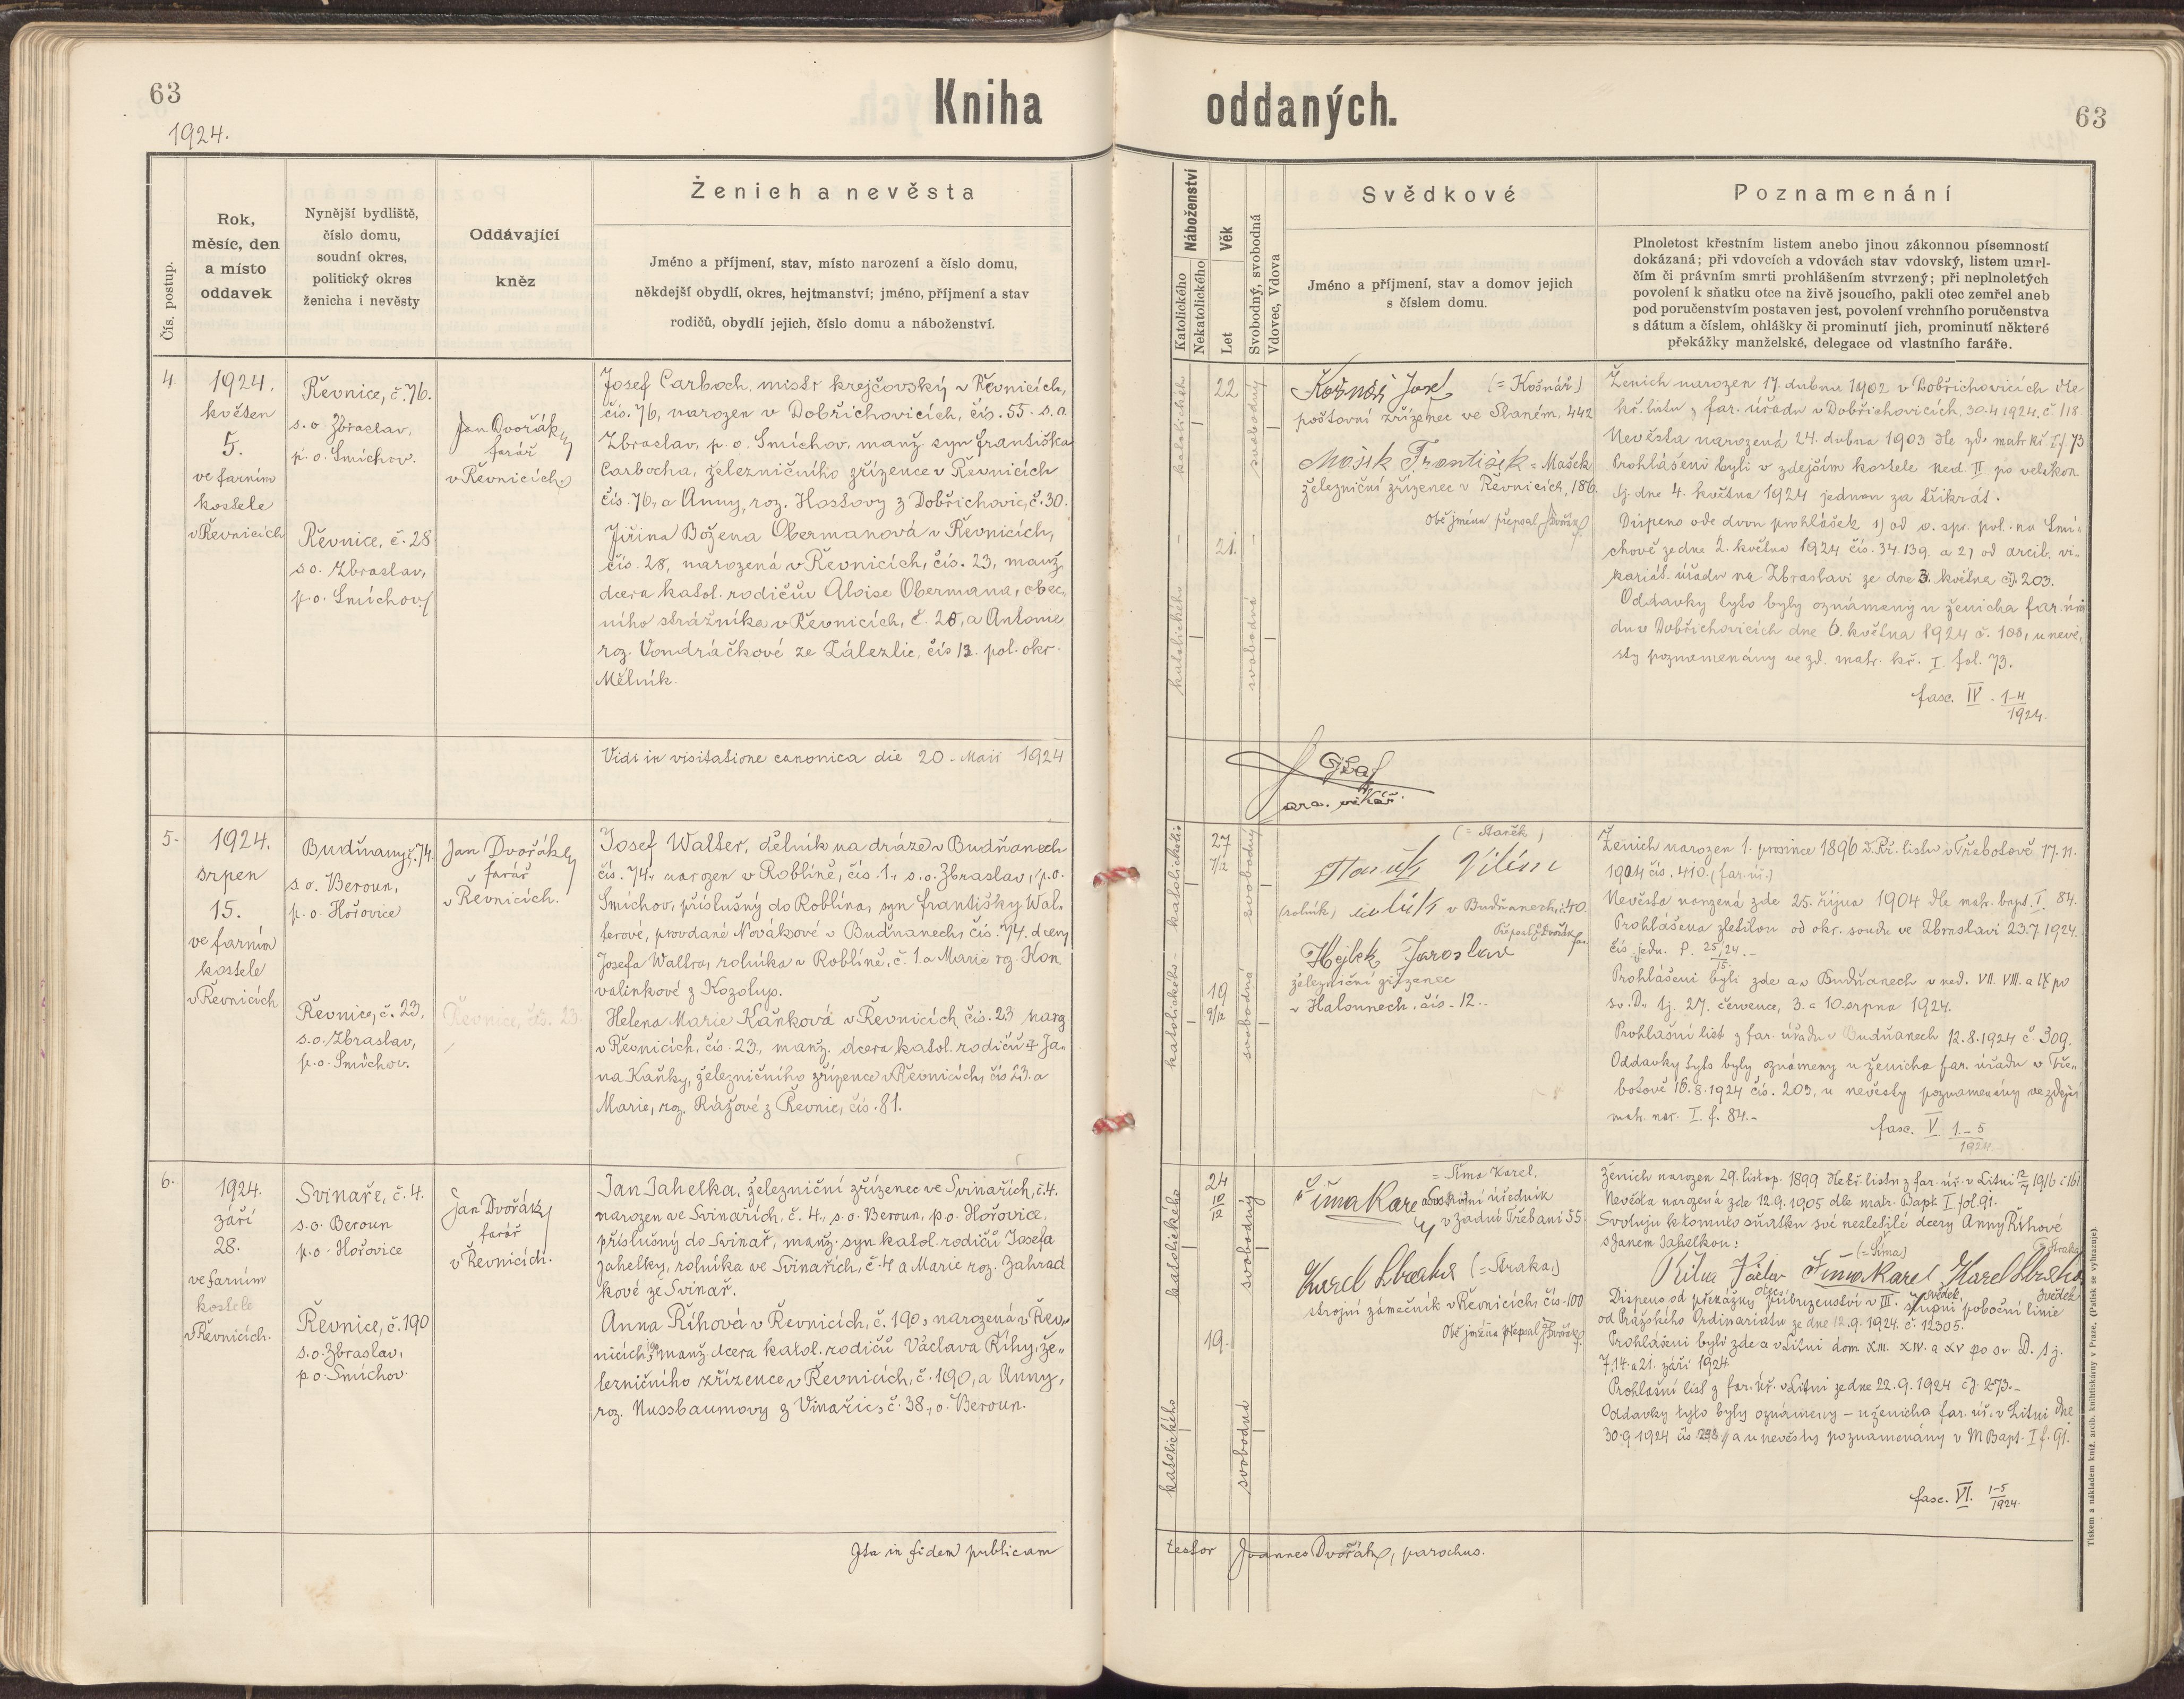 63
1924.
Kniha
Čís. postup.
Rok,
měsíc, den
a místo
oddavek
Nynější bydliště,
číslo domu,
soudní okres,
politický okres
ženicha i nevěsty
Oddávající
kněz
Ženich a nevěsta
Jméno a příjmení, stav, místo narození a číslo domu,
někdejší obydlí, okres, hejtmanství; jméno, příjmení a stav
rodičů, obydlí jejich, číslo domu a náboženství.
4.
1924.
květen
5.
ve farním
kostele
v Řevnicích
Řevnice, č. 76.
s. o. Zbraslav,
p. o. Smíchov.
Řevnice, č. 28
s. o. Zbraslav,
p. o. Smíchov
Jan Dvořák,
farář
v Řevnicích
Josef Carboch, mistr krejčovský v Řevnicích,
čís. 76, narozen v Dobřichovicích, čís. 55. s. o.
Zbraslav, p. o. Smíchov, manž. syn Františka
Carbocha, železničního zřízence v Řevnicích
čís. 76, a Anny, roz. Hostovy z Dobřichovic, č. 30.
Jiřina Božena Obermanová v Řevnicích,
čís. 28, narozená v Řevnicích, čís. 23, manž.
dcera katol. rodičův Aloise Obermana, obec-
ního strážníka v Řevnicích, č. 28, a Antonie
roz. Vondráčkové ze Zálezlic, čís 13. pol. okr.
Mělník.
Vidi in visitatione canonica die 20. Maii 1924
5.
1924.
srpen
15.
ve farním
kostele
v Řevnicích
Budňany, č. 74.
s. o. Beroun,
p. o. Hořovice
Řevnice, č. 23,
s. o. Zbraslav,
p. o. Smíchov.
Jan Dvořák,
farář
v Řevnicích.
Řevnice, čís. 23.
Josef Walter, dělník na dráze v Budňanech
čís. 74, narozen v Roblíně, čís 1., s. o. Zbraslav, p. o.
Smíchov, příslušný do Roblína, syn Františky Wal-
terové, provdané Novákové v Budňanech čís. 74. dcery
Josefa Waltra, rolníka v Roblíně, č. 1. a Marie roz. Kon
valinkové z Kozolup.
Helena Marie Kaňková v Řevnicích, čís. 23 naroz
v Řevnicích, čís. 23., manž. dcera katol. rodičů Ja-
na Kaňky, železničního zřízence v Řevnicích, čís 23. a
Marie, roz. Rážové z Řevnic, čís. 81.
6.
1924.
září
28.
ve farním
kostele
v Řevnicích.
Svinaře, č. 4.
s. o. Beroun
p. o. Hořovice
Řevnice, č. 190
s. o. Zbraslav,
p. o. Smíchov.
Jan Dvořák,
farář
v Řevnicích.
Jan Jahelka, železniční zřízenec ve Svinařích, č. 4.
narozen ve Svinařích, č. 4., s. o. Beroun, p. o. Hořovice,
příslušný do Svinař, manž. syn katol. rodičů Josefa
Jahelky, rolníka ve Svinařích, č. 4 a Marie roz. Zahrad
kové ze Svinař.
Anna Říhová v Řevnicích, č. 190, narozená v Řev-
nicích, manž. dcera katol. rodičů Václava Říhy, že-
lezničního zřízence v Řevnicích, č. 190, a Anny,
roz. Nussbaumovy z Vinařic, č. 38., o. Beroun.
Ita in fidem publicam
oddaných.
63
Náboženství
Katolického
Nekatolického
Věk
Let
Svobodný, svobodná
Vdovec, Vdova
Svědkové
Jméno a příjmení, stav a domov jejich
s číslem domu.
Poznamenání
Plnoletost křestním listem anebo jinou zákonnou písemností
dokázaná; při vdovcích a vdovách stav vdovský, listem úmrt-
čím či právním smrti prohlášením stvrzený; při neplnoletých
povolení k sňatku otce na živě jsoucího, pakli otec zemřel aneb
pod poručenstvím postaven jest, povolení vrchního poručenstva
s dátum a číslem, ohlášky či prominutí jich, prominutí některé
překážky manželské, delegace od vlastního faráře.
katolického
22
svobodný
katolického
21.
svobodná
Košnář Josef (= Košnář)
poštovní zřízenec ve Slaném, 442
Mašek František = Mašek
železniční zřízenec v Řevnicích, 186.
Obě jména přepsal Dvořák
Ženich narozen 17. dubna 1902 v Dobřichovicích dle
kř. listu z far. úřadu v Dobřichovicích, 30.4 1924, č. 118
Nevěsta narozená 24. dubna 1903 dle zd. matr. kř. I f. 73
Prohlášeni byli v zdejším kostele ned. II po velikon.
tj. dne 4. května 1924 jednou za třikrát.
Dispens ode dvou prohlášek 1) od o. spr. pol. na Smí-
chově ze dne 2. května 1924 čís. 34.139. a 2) od arcib. vi-
kariát. úřadu na Zbraslavi ze dne 3. května čj. 203.
Oddavky tyto byly oznámeny u ženicha far. úřa
du v Dobřichovicích dne 6. května 1924 č. 100, u nevě-
sty poznamenány ve zd. matr. kř. I. fol. 73.
fasc. IV. 1-4/1924.
arc. vikář.
katolického
27
7/12
svobodný
katolického
19
9/12
svobodná
(= Stařík)
Vilém
(rolník) v Budňanech, č. 40.
Přepsal Dvořák far.
Hejlek Jaroslav
železniční zřízenec
v Halounech. čís. 12.
Ženich narozen 1. prosince 1896 d. kř. listu v Třebotově 17. 11.
1904 čís. 410. (far. úř.)
Nevěsta narozená zde 25. října 1904 dle matr. bapt. I. 84.
Prohlášena zletilou od okr. soudu ve Zbraslavi 23.7 1924.
čís. jedn. P. 25/24/15.
Prohlášeni byli zde a v Budňanech v ned. VII. VIII. a IX po
sv. D. tj. 27. července, 3. a 10. srpna 1924.
Prohlašní list z far. úřadu v Budňanech 12.8.1924 č. 309.
Oddavky tyto byly oznámeny u ženicha far. úřadu v Tře-
botově 16. 8. 1924 čís. 203, u nevěsty poznamenány ve zdejší
matr. nar. I. f. 84.-
fasc. V. 1-5/1924
katolického
24
10/12
svobodný
katolického
19.
svobodná
= Šíma Karel,
Šíma Karel soukromý úředník
v Zadní Třebani 55.
Karel Straka (= Straka,)
strojní zámečník v Řevnicích, čís. 100
Obě jména přepsal Dvořák
Ženich narozen 29. listop. 1899 dle kř. listu z far. úř. v Litni 12/7 1916 č 161
Nevěsta narozená zde 12.9.1905 dle matr. Bapt. I fol. 91.
Svoluju k tomuto sňatku své nezletilé dcery Anny Říhové
s Janem Jahelkou:
(= Šíma) (= Straka)
Říha Václav Šíma Karel Karel Straka
otec svědek svědek
Dispens od překážky příbuzenství v III. stupni poboční linie
od Pražského Ordinariátu ze dne 12. 9. 1924. č. 12305.
Prohlášeni byli zde a v Litni dom. XIII. XIV. a XV po sv. D. tj.
7, 14. a 21. září 1924.
Prohlašní list z far. úř. v Litni ze dne 22. 9. 1924 čj. 273.-
Oddavky tyto byly oznámeny - u ženicha far. úř. v Litni dne
30.9 1924 čís 298. a u nevěsty poznamenány v M. Bapt. I f. 91.
fasc. VI. 1-5/1924.
testor Joannes Dvořák, parochus.
Tiskem a nákladem kníž. arcib. knihtiskárny v Praze. (Patisk se vyhrazuje).